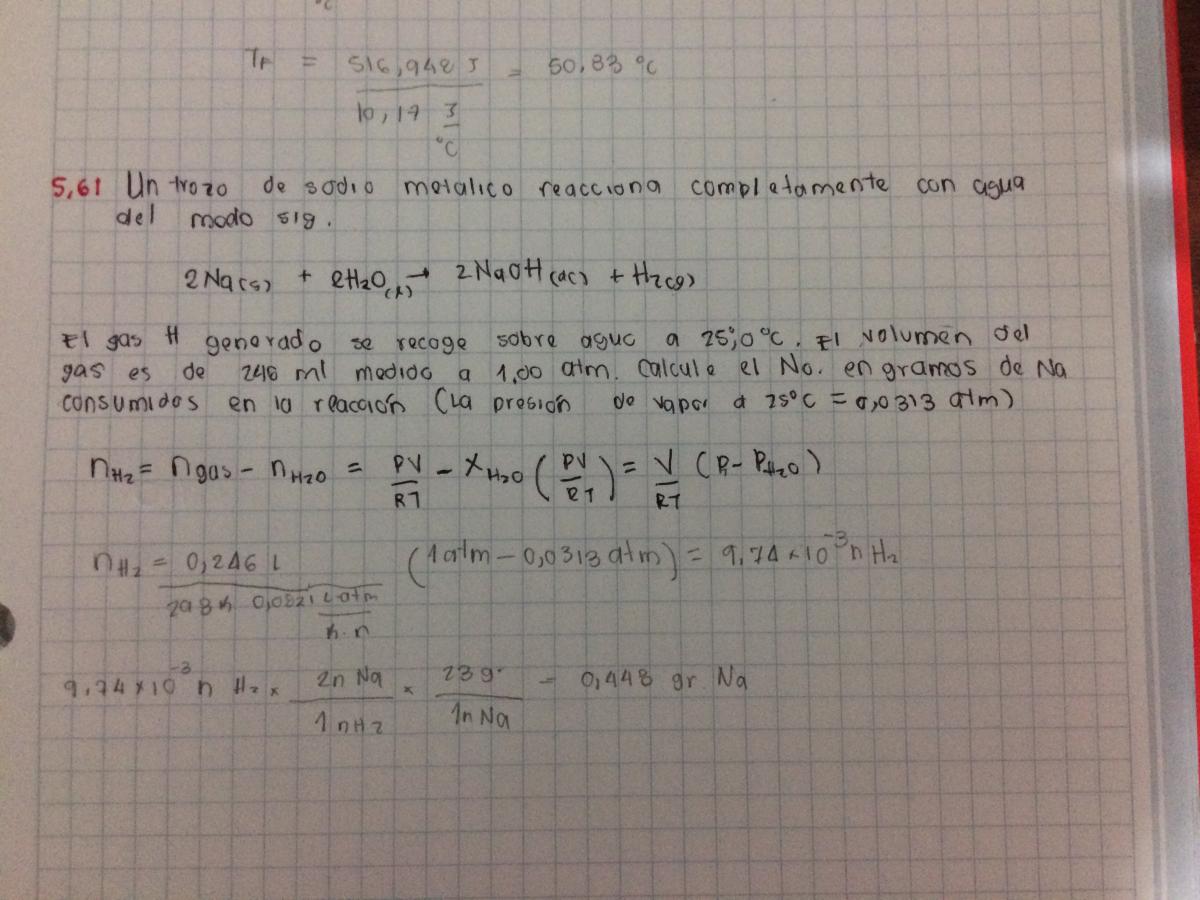 °C
TF = 516,948 J / 10,17 J/°C = 50,83 °C
5,61 Un trozo de sodio metalico reacciona completamente con agua
del modo sig.
2Na(s) + 2H2O(l) → 2NaOH(ac) + H2(g)
El gas H generado se recoge sobre agua a 25,0°C. El volumen del
gas es de 246 ml medido a 1,00 atm. Calcule el No. en gramos de Na
consumidos en la reacción (La presión de vapor a 25°C = 0,0313 atm)
nH2 = ngas - nH2O = PV/RT - XH2O (PV/RT) = V/RT (P - PH2O)
nH2 = 0,246 L / 298 K 0,0821 L atm/K.n (1 atm - 0,0313 atm) = 9,74 x 10^-3 n H2
9,74 x 10^-3 n H2 x 2n Na / 1 n H2 x 23 g / 1n Na = 0,448 gr Na